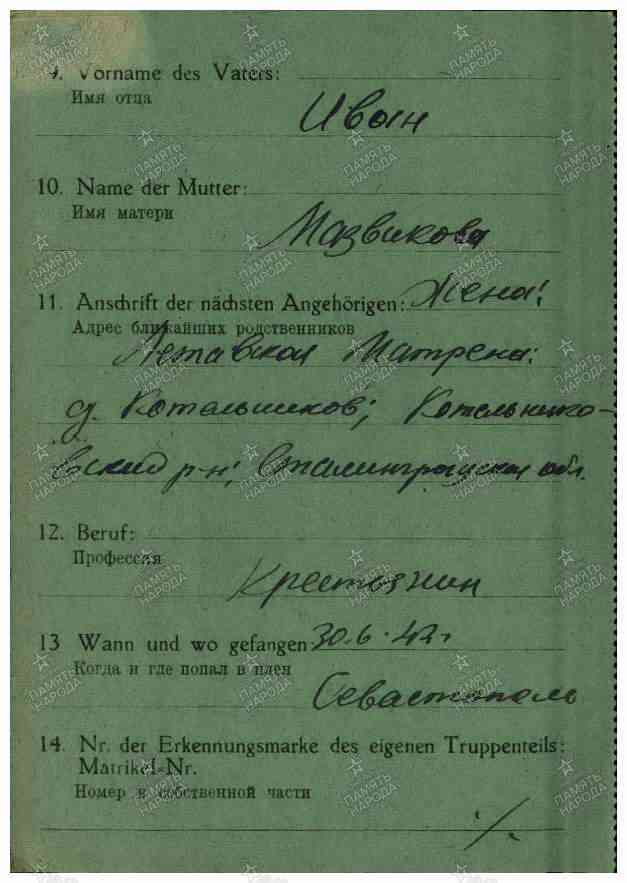 9. Vorname des Vaters:
Имя отца
Иван
10. Name der Mutter:
Имя матери
Мазвикова
11. Anschrift der nächsten Angehörigen: Жена:
Адрес ближайших родственников
Летавская Матрена:
д. Котельников; Котельнико-
вский р-н; Сталинградская обл.
12. Beruf:
Профессия
Крестьянин
13 Wann und wo gefangen 30.6.42г
Когда и где попал в плен
Севастополь
14. Nr. der Erkennungsmarke des eigenen Truppenteils:
Matrikel-Nr.
Номер в собственной части
·/.
ПАМЯТЬ НАРОДА